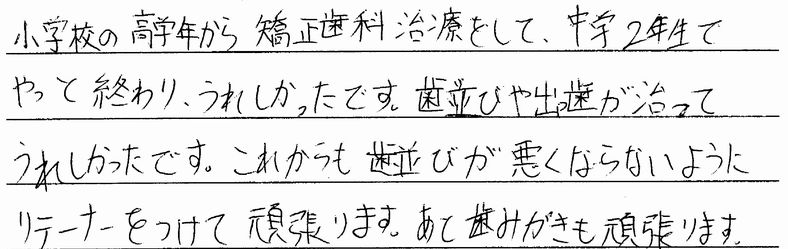 小学校の高学年から矯正歯科治療をして、中学2年生で
やっと終わり、うれしかったです。歯並びや出っ歯が治って
うれしかったです。これからも歯並びが悪くならないように
リテーナーをつけて頑張ります。あと歯みがきも頑張ります。